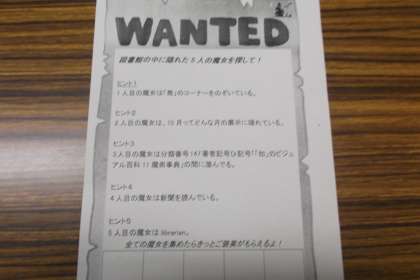 WANTED
図書館の中に隠れた5人の魔女を探して!
ヒント1
1人目の魔女は「青」のコーナーをのぞいている。
ヒント2
2人目の魔女は、10月ってどんな月の展示に隠れている。
ヒント3
3人目の魔女は分類番号147著者記号ひ記号「『知』のビジュ
アル百科11魔術事典」の間に潜んでる。
ヒント4
4人目の魔女は新聞を読んでいる。
ヒント5
5人目の魔女は librarian。
全ての魔女を集めたらきっとご褒美がもらえるよ!